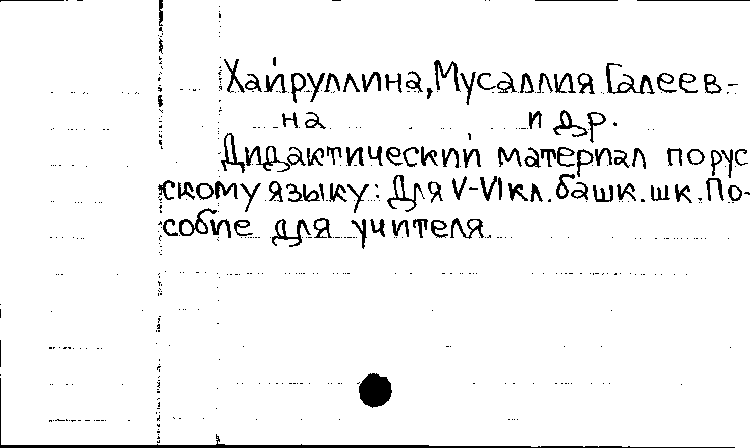 Хайруллина, Мусаллия Галеев-
на и др.
Дидактический материал по рус
скому языку: Для V-VI кл. башк. шк. По-
собие для учителя.